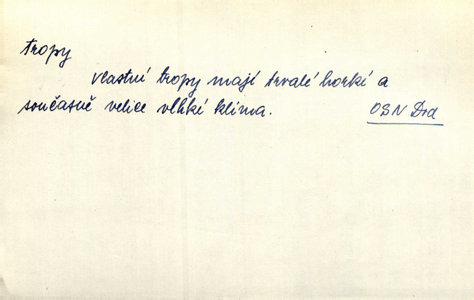 tropy
vlastní tropy mají trvalé horké a
současně velice vlhké klima.
OSN Drd